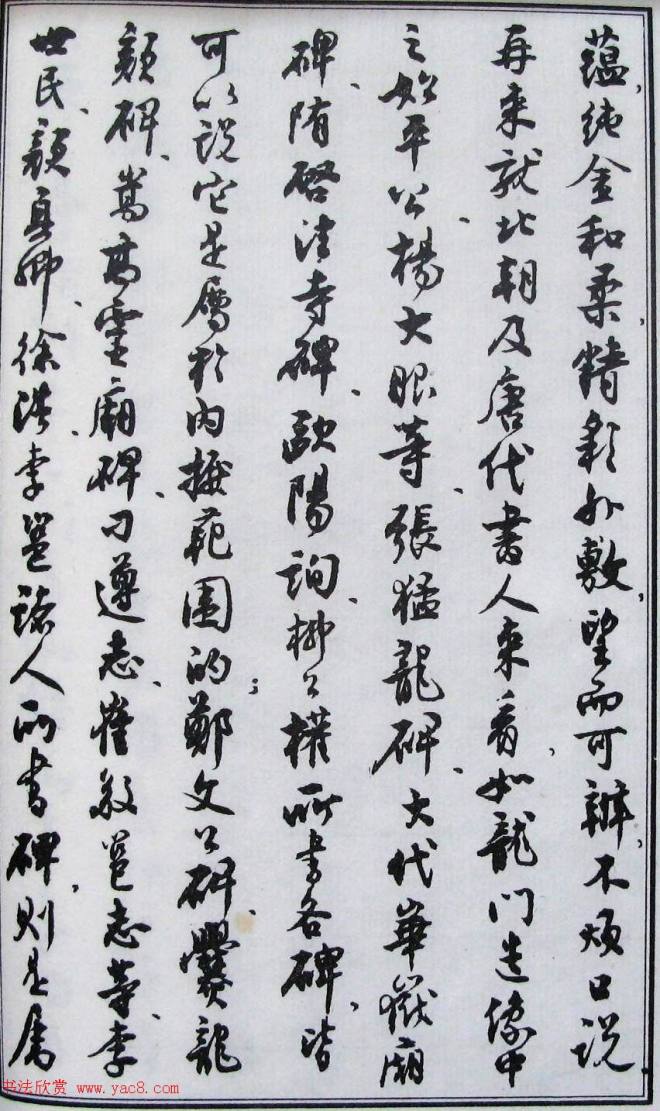 蕴,纯金和柔,精彩外敷,望而可辨,不烦口说
再来就北朝及唐代书人来看,如龍门造像中
之始平公、楊大眼等、張猛龍碑、大代華嶽廟
碑、隋啓法寺碑、歐陽詢、柳公權所書各碑,皆
可以说它是屬於内擫范围的;鄭文公碑、爨龍
顏碑、嵩高靈廟碑、刁遵志、崔敬邕志等、李
世民、顏真卿、徐浩、李邕諸人所書碑,則是属
书法欣赏 www.yac8.com